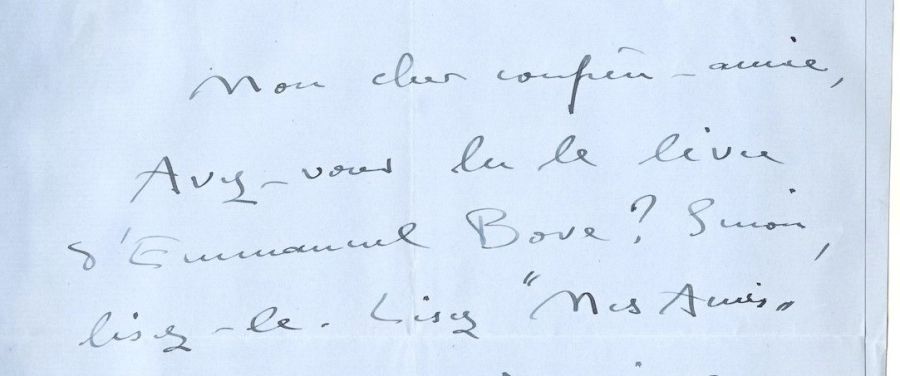 Mon cher confrère-amie,
Avez-vous lu le livre
d'Emmanuel Bove? Sinon,
lisez-le. Lisez "Mes Amis"